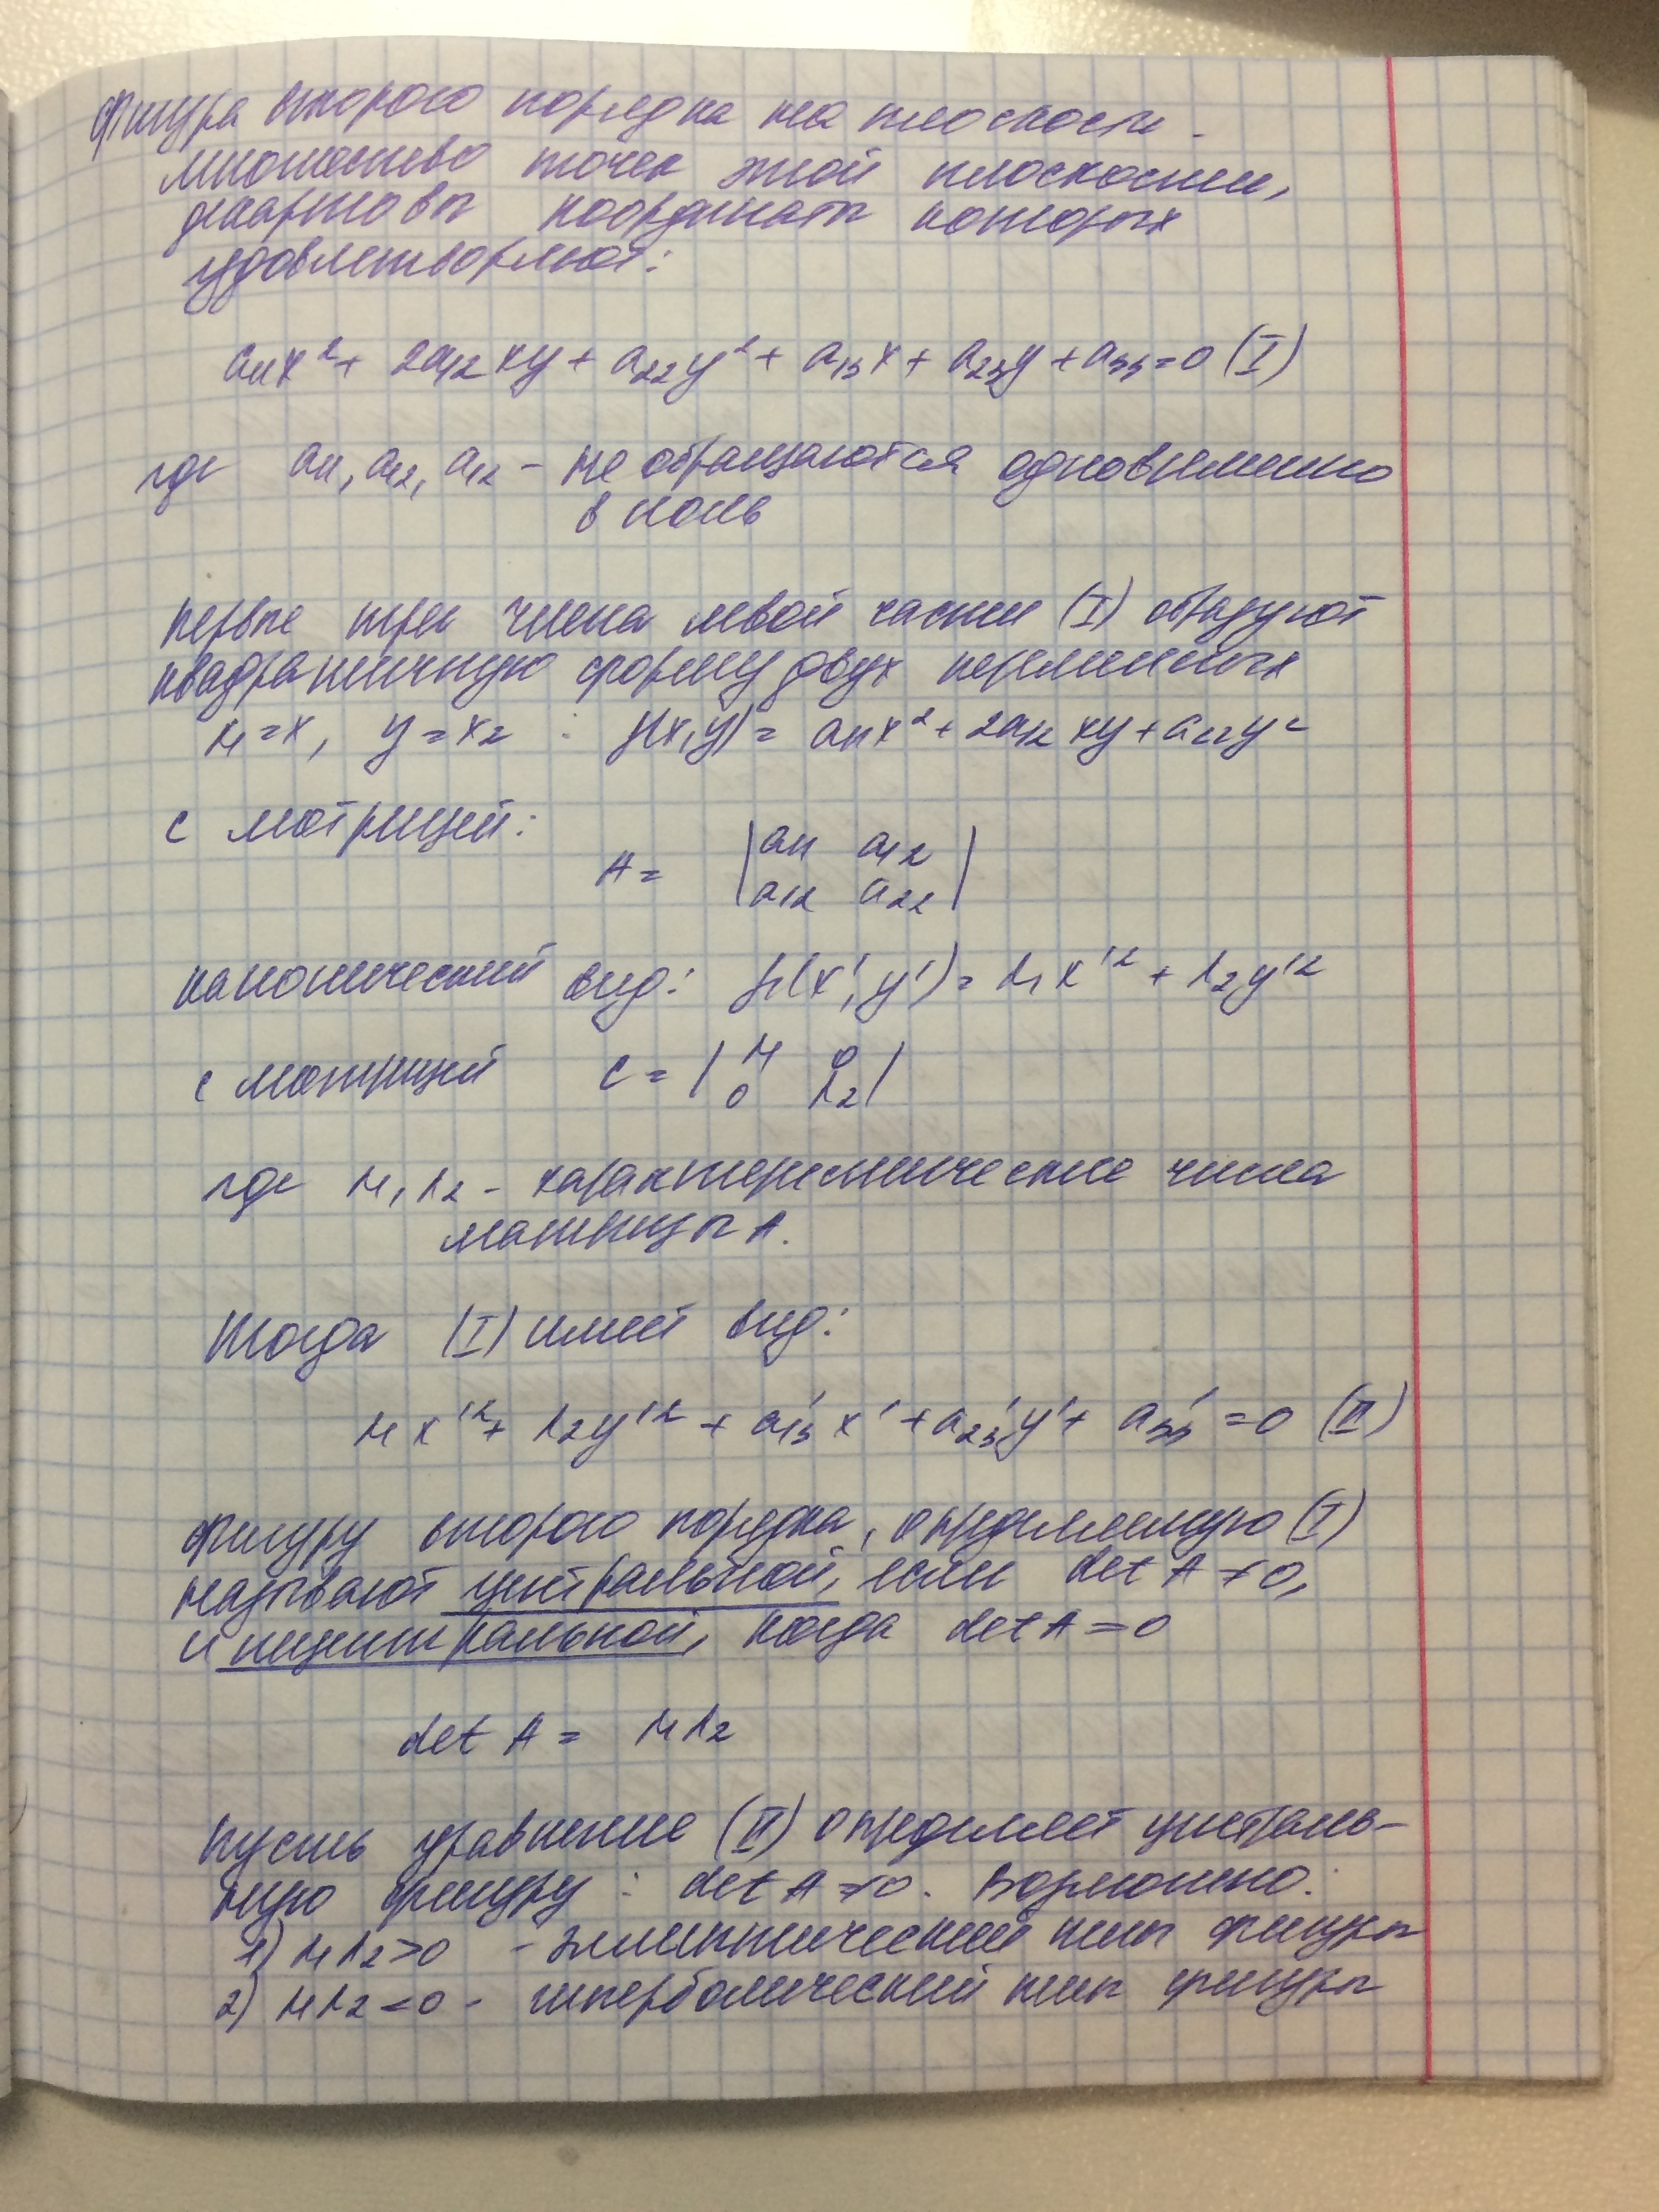 Фигура второго порядка на плоскости -
множество точек этой плоскости,
декартовы координаты которых
удовлетворяют:
a₁₁x² + 2a₁₂xy + a₂₂y² + a₁₃x + a₂₃y + a₃₃ = 0 (I)
где a₁₁, a₁₂, a₁₂ - не обращаются одновременно
в ноль
первые три члена левой части (I) образуют
квадратичную форму двух переменных
x₁ = x, y = x₂ : f(x,y) = a₁₁x² + 2a₁₂xy + a₂₂y²
с матрицей:
A = |a₁₁ a₁₂|
|a₁₂ a₂₂|
канонический вид: f₁(x', y') = λ₁x'² + λ₂y'²
с матрицей C = |λ₁ 0|
|0 λ₂|
где λ₁, λ₂ - характеристические числа
матрицы A.
Тогда (I) имеет вид:
λ₁x'² + λ₂y'² + a₁₃'x' + a₂₃'y' + a₃₃' = 0 (II)
Фигуру второго порядка, определяемую (I)
называют центральной, если det A ≠ 0,
и нецентральной, когда det A = 0
det A = λ₁λ₂
Пусть уравнение (II) определяет централь-
ную фигуру : det A ≠ 0. Возможно:
1) λ₁λ₂ > 0 - эллиптический тип фигуры
2) λ₁λ₂ < 0 - гиперболический тип фигуры